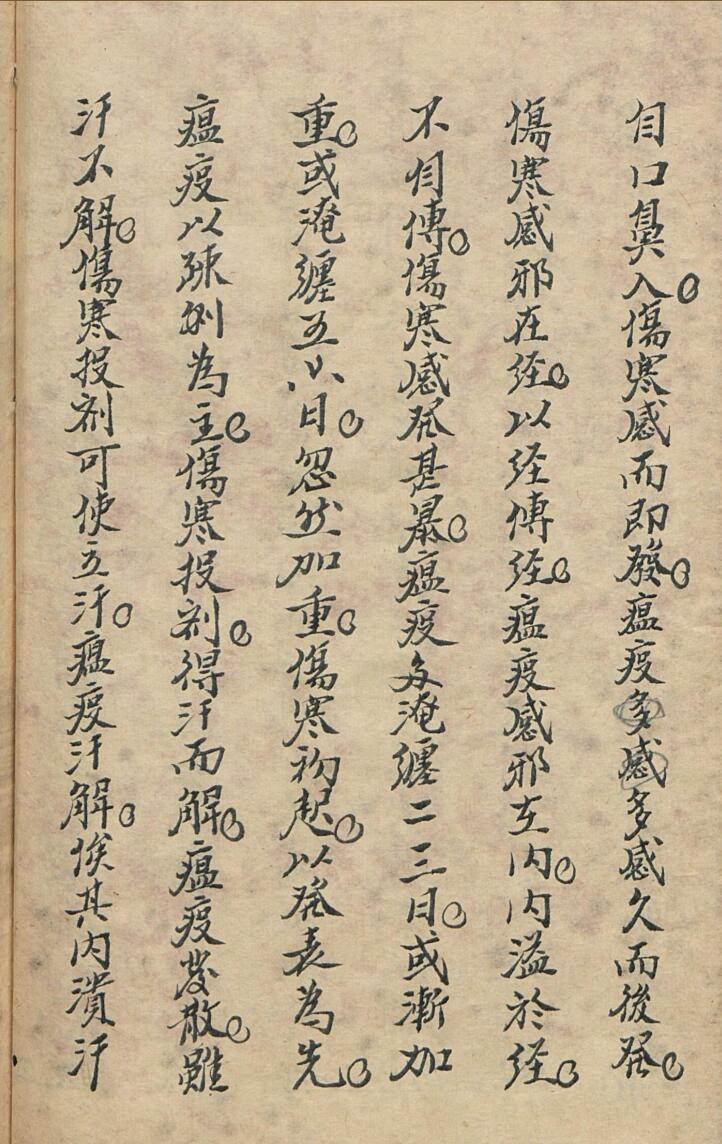 自口鼻入傷寒感而即發瘟疫多感多感久而後發
傷寒感邪在経以経傳経瘟疫感邪在内内溢於経
不自傳傷寒感發甚暴瘟疫多淹纏二三日或漸加
重或淹纏五六日忽然加重傷寒初起以發表為先
瘟疫以疎利為主傷寒投剤得汗而解瘟疫發散雖
汗不解傷寒投剤可使立汗瘟疫汗解俟其内潰汗